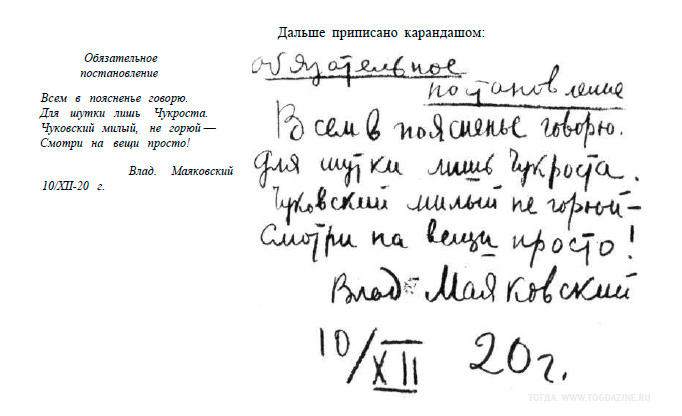 Дальше приписано карандашом:
Обязательное
постановление
Всем в поясненье говорю.
Для шутки лишь Чукроста.
Чуковский милый, не горюй —
Смотри на вещи просто!
Влад. Маяковский
10/XII-20 г.
обязательное
постановление
Всем в поясненье говорю.
Для шутки лишь Чукроста.
Чуковский милый не горюй —
Смотри на вещи просто!
Влад Маяковский
10/XII 20 г.
ТОГДА. WWW.TOGDAZINE.RU